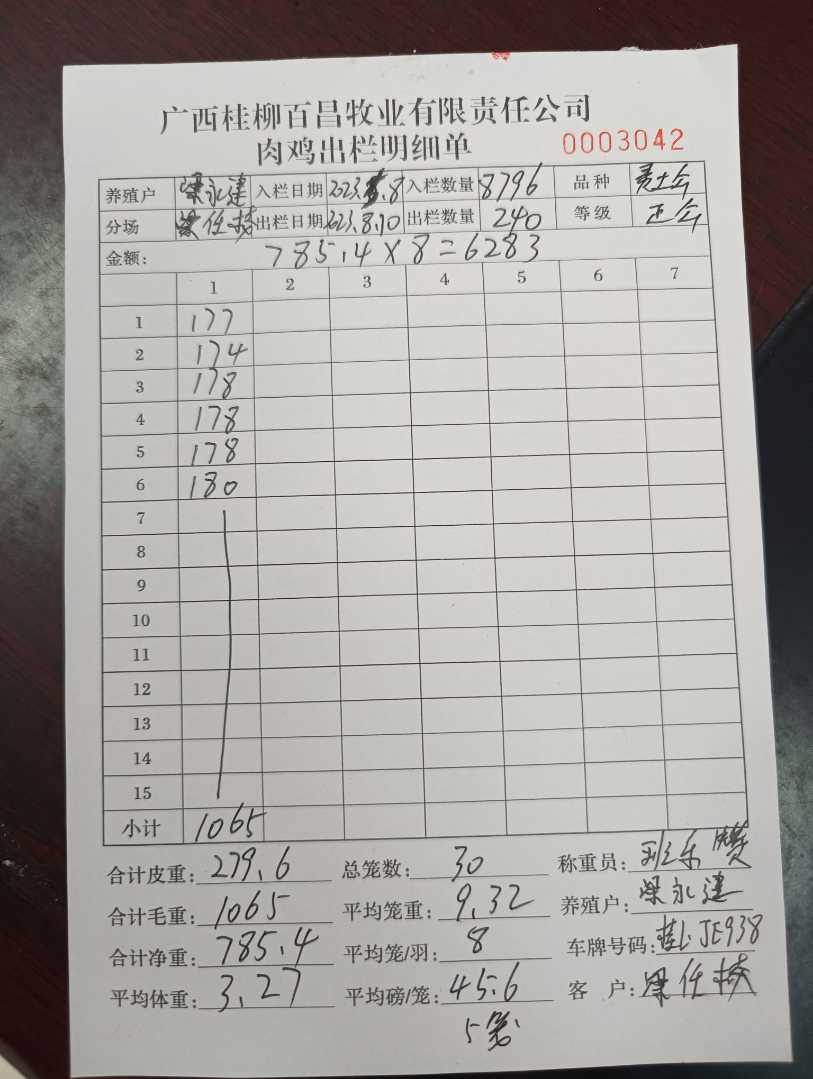 广西桂柳百昌牧业有限责任公司
肉鸡出栏明细单 0003042
养殖户 梁永建 入栏日期 2023.5.8 入栏数量 8796 品种
分场 梁任栋 出栏日期 2023.8.10 出栏数量 240 等级
金额: 785.4 X 8 = 6283
1 2 3 4 5 6 7
1 177
2 174
3 178
4 178
5 178
6 180
7
8
9
10
11
12
13
14
15
小计 1065
合计皮重: 279.6 总笼数: 30 称重员:
合计毛重: 1065 平均笼重: 9.32 养殖户: 梁永建
合计净重: 785.4 平均笼/羽: 8 车牌号码: 桂L JE938
平均体重: 3.27 平均磅/笼: 45.6 客 户: 梁任栋